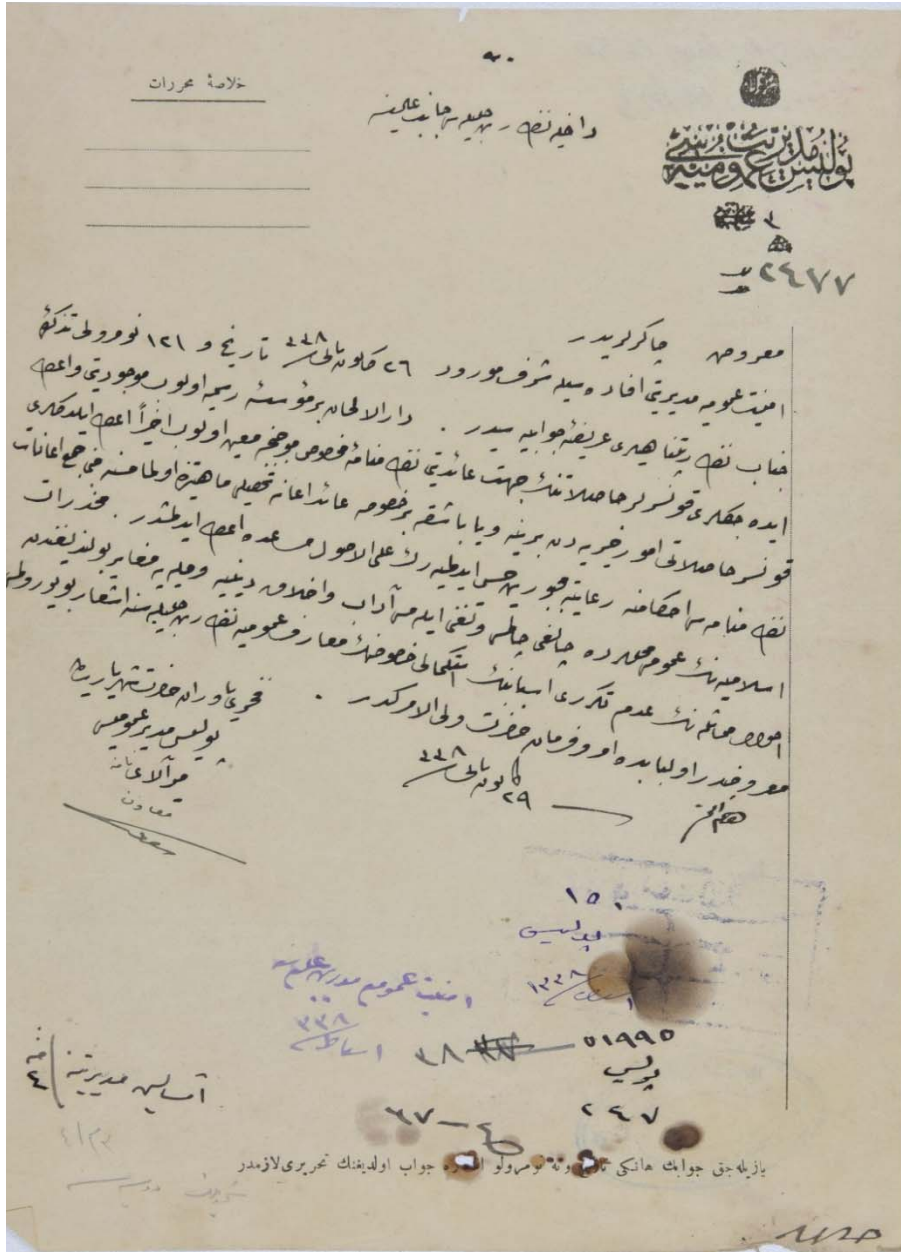 خلاصهٔ محررات
پوليس مديريت عموميه سی
٢٤٧٧
داخليه نظارت جليله سی جانب عاليسنه
معروض چاكرلريدر
امنيت عموميه مديريتی افاده سيله شرفمورود ٢٦ كانون ثانی ٣٣٨ تاريخ و ١٢١ نومرولی تذكرهٔ
جناب نظارتپناهيلری عريضهٔ جوابيه سيدر . دار الالحان بر مؤسسهٔ رسميه اولوب موجوديتی واعطا
ايده جكلری قونسرلر حاصلاتنك جهت عائديتی نظامنامهٔ مخصوصی موجبنجه معين اولوب اخيراً اعطا ايلدكلری
قونسر حاصلاتی امور خيريه دن برينه ويا باشقه بر خصوصه عائد اعانه تحصيلی ماهيتنده اولمامسنه مبنی جمع اعانات
نظامنامه سی احكامنه رعايته مجبوريت حس ايدلميه رك علی الاصول مساعده اعطا ايدلمشدر . مخدرات
اسلاميه نك عمومی محللرده چالغی چالمسی وتغنی ايلمسی آداب واخلاق دينيه ومليه يه مغاير بولنديغندن
احوال مماثله نك عدم تكرری اسبابنك استكمالی خصوصنك معارف عموميه نظارت جليله سنه اشعار بويورولمسی
معروضدر اولبابده امر وفرمان حضرت ولی الامركدر .
٢٩ كانون ثانی ٣٣٨
فخری ياوران حضرت شهرياريدن
پوليس مدير عموميسی
ميرآلای
معاون
١٥٠
پوليس
١٣٣٨
امنيت عموميه مديريت عليه سنه
٣٣٨
٥١٩٩٥
٣٨
پوليس
٢٤٧
آسايش مديريتنه
٦٧
يازيله جق جوابك هانكی تاريخ ونه نومرولو اشعاره جواب اولديغنك تحريری لازمدر